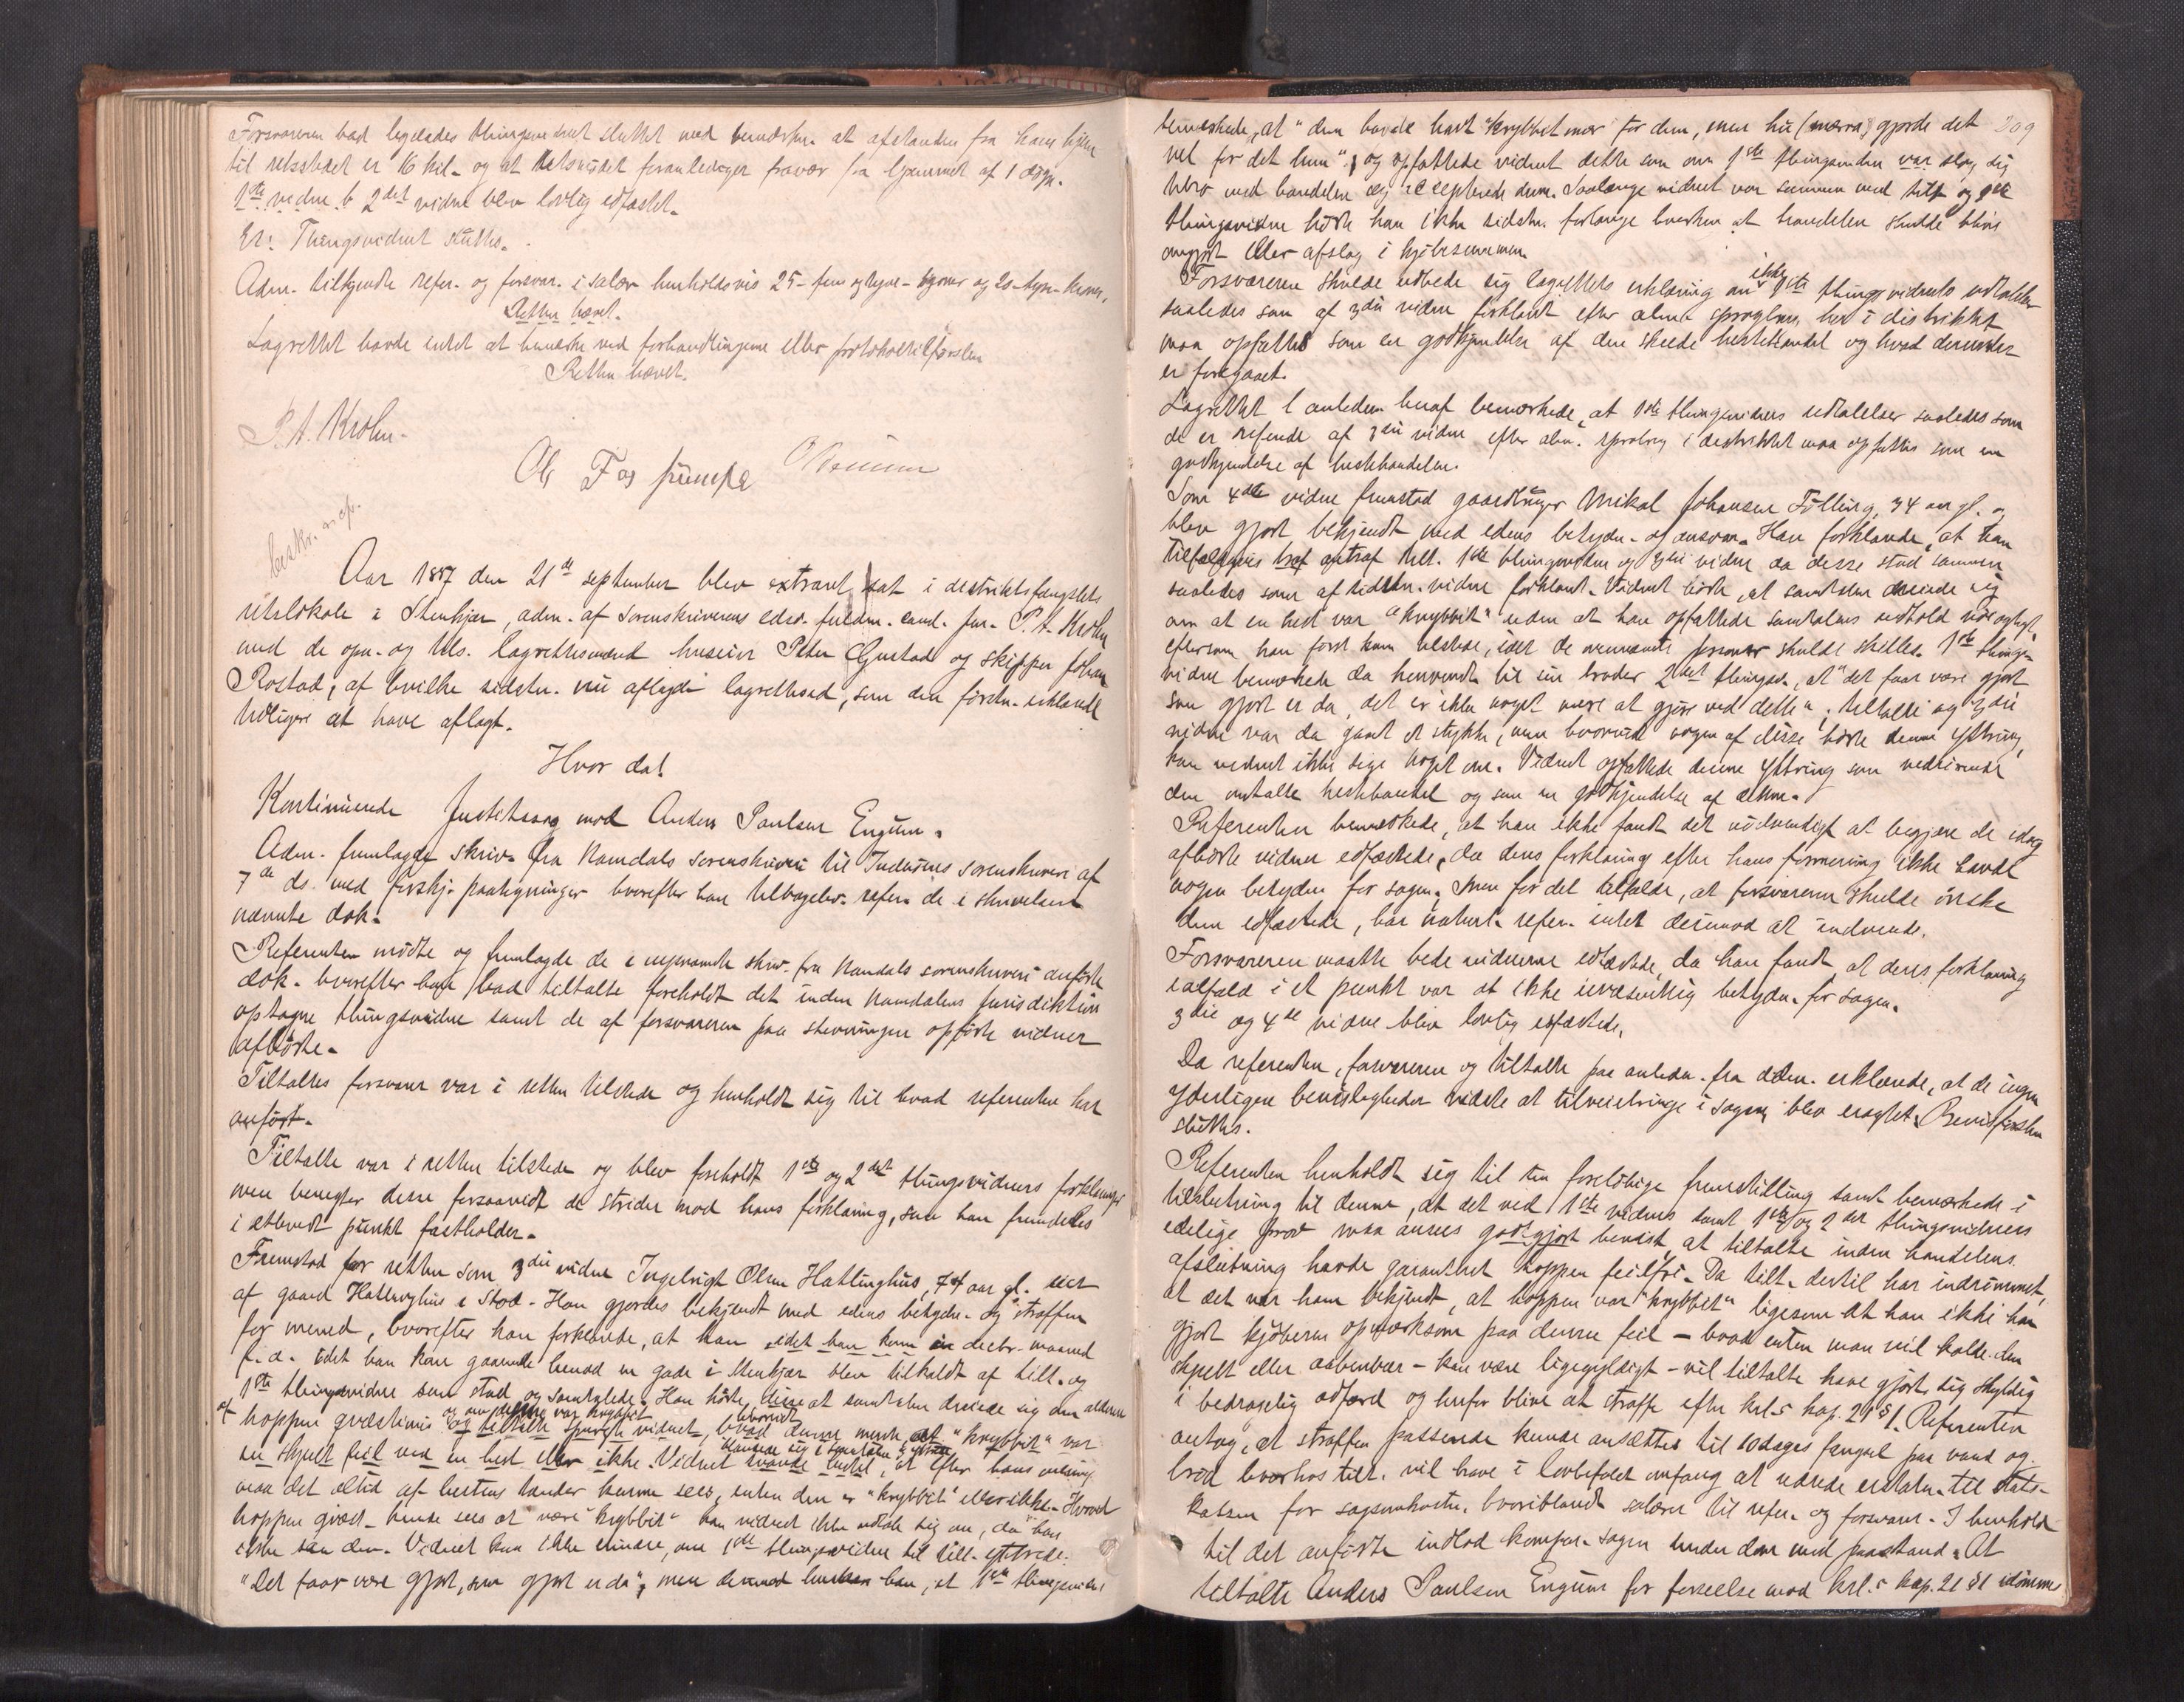 Forsvareren bad ligeledes thingsvidnet sluttet med bemærkn. at afstanden fra hans hjem
til retsstedet er 16 kil. og at retsmødet foranlediger fravær fra hjemmet af 1 døgn.
1ste vidne b 2det vidne blev lovlig edfæstet.
Er: Thingsvidnet sluttes.
Adm. tilkjendte refer. og forsvar. i salær henholdsvis 25 - fem og tyve - kroner og 20 - tyve - kroner.
Retten hævet.
Lagrettet havde intet at bemærke ved forhandlingerne eller protokoltilførslen
Retten hævet.
P. A. Krohn.
Ole Fos
beskr. ref.
Aar 1887 den 21de september blev extraret sat i distriktsfængslets
retslokale i Stenkjær, adm. af sorenskriverens edsv. fuldm. cand. jur. P. A. Krohn
med de opn. og tils. lagrettesmænd huseier Peter Gustad og skipper Johan
Rostad, af hvilke sidstn. nu aflagde lagretteed, som den førstn. erklærede
tidligere at have aflagt.
Hvor da!
Kontinuerede Justitssag mod Anders Paulsen Engum.
Adm. fremlagde skriv. fra Namdals sorenskriveri til Inderøens sorenskriveri af
7de ds. med forskj. paategninger hvorefter han tilbagelev. refer. de i skrivelsen
nævnte dok.
Referenten mødte og fremlagde de i nysnævnte skriv. fra Namdals sorenskriveri anførte
dok. hvorefter han bad tiltalte foreholdt det inden Namdalens jurisdiktion
optagne thingsvidne samt de af forsvareren paa stevningen opførte vidner
afhørte.
Tiltaltes forsvarer var i retten tilstede og henholdt sig til hvad referenten har
anført.
Tiltalte var i retten tilstede og blev foreholdt 1ste og 2det thingsvidners forklaringer
men benegter disse forsaavidt de strider mod hans forklaring, som han fremdeles
i ethvert punkt fastholder.
Fremstod for retten som 3die vidne Ingebrigt Olsen Hattinghus, 74 aar gl. eier
af gaard Hattinghus i Stod. Han gjordes bekjendt med edens betydn. og straffen
for mened, hvorefter han forklarede, at han idet han kom en decbr. maaned
f. a. idet han kom gaaende henad en gade i Stenkjær blev tilkaldt af tilt. og
1ste thingsvidne som stod og samtalede. Han hørte disse at samtalen dreiede sig om alderen
af hoppen qvæstionis og om denne var krybbit
og tiltalte spurgte vidnet, hvad hvorvidt denne mente, at "krybbit" var
en skjult feil ved en hest eller ikke. Vidnet svarede hertil, at efter hans mening
maa det altid af hestens tænder kunne sees, enten den er "krybbit" eller ikke. Hvorvidt
hoppen qvæst. kunde sees at være "krybbit" kan vidnet ikke udtale sig om, da han
ikke saa den. Vidnet kan ikke erindre, om 1ste thingsvidne til tilt. yttrede:
"Det faar være gjort, som gjort er da", men derimod husker han, at 1ste thingsvidne
209
bemærkede, at "den havde havt krybbet mær før den, men hu (mærra) gjorde det
vel for det hun", og opfattede vidnet dette som om 1ste thingsvidne var slog sig
tilro med handelen og accepterede den. Saalænge vidnet var sammen med tilt. og 1ste
thingsvidne hørte han ikke sidstn. forlange hverken at handelen skulde blive
omgjort eller afslag i kjøbesummen.
Forsvareren skulde udbede sig lagrettets erklæring om ikke 1ste thingsvidnets udtalelser
saaledes som af 3die vidne forklaret efter alm. sprogbrug her i distriktet
maa opfattes som en godkjendelse af den skeede hestehandel og hvad derunder
er foregaaet.
Lagrettet i anledn. heraf bemærkede, at 1ste thingsvidnes udtalelser saaledes som
de er referede af 3die vidne efter alm. sprogbrug i distriktet maa opfattes som en
godkjendelse af hestehandelen.
Som 4de vidne fremstod gaardbruger Mikal Johansen Følling, 34 aar gl. og
blev gjort bekjendt med edens betydn. og ansvar. Han forklarede, at han
tilfældigvis traf antraf tilt. 1ste thingsvidne og 3die vidne, da disse stod sammen
saaledes som af sidstn. vidne forklaret. Vidnet hørte, at samtalen dreiede sig
om at en hest var "krybbit" uden at han opfattede samtalens indhold nøiagtigt,
eftersom han først kom tilstede, idet de nævnte personer skulde skilles. 1ste things-
vidne bemærkede da henvendt til sin broder 2det thingsv., at "det faar være gjort
som gjort er da, det er ikke noget mere at gjøre ved dette"; tiltalte og 3die
vidne var da gaaet et stykke, men hvorvidt nogen af disse hørte denne yttring,
kan vidnet ikke sige noget om. Vidnet opfattede denne yttring som vedrørende
den omtalte hestehandel og som en godkjendelse af denne.
Referenten bemærkede, at han ikke fandt det nødvendigt at begjære de idag
afhørte vidner edfæstede, da deres forklaring efter hans formening ikke havde
nogen betydn. for sagen. Men for det tilfælde, at forsvareren skulde ønske
dem edfæstede, har naturl. refer. intet derimod at indvende.
Forsvareren maatte bede vidnerne edfæstede, da han fandt, at deres forklaring
ialfald i et punkt var af ikke uvæsentlig betydn. for sagen.
3die og 4de vidne blev lovlig edfæstede.
Da referenten, forsvareren og tiltalte paa anledn. fra adm. erklærede, at de ingen
yderligere bevisligheder vidste at tilveiebringe i sagen, blev eragtet: Bevisførslen
sluttes.
Referenten henholdt sig til sin foreløbige fremstilling samt bemærkede i
tilslutning til denne, at det ved 1ste vidnes samt 1ste og 2det thingsvidners
edelige prov maa ansees godtgjort bevist, at tiltalte inden handelens
afslutning havde garanteret hoppen feilfri. Da tilt. dertil har indrømmet,
at det var ham bekjendt, at hoppen var "krybbit" ligesom at han ikke har
gjort kjøberen opmærksom paa denne feil - hvad enten man vil kalde den
skjult eller aabenbar - kan være ligegyldigt - vil tiltalte have gjort sig skyldig
i bedragelig adfærd og herfor blive at straffe efter krl.s kap. 21 § 1. Referenten
antog, at straffen passende kunde ansættes til 10 dages fængsel paa vand og
brød hvorhos tilt. vil have i lovbefalet omfang at udrede erstatn. til stats-
kassen for sagsomkostn., hvoriblandt salærer til refer. og forsvarer. I henhold
til det anførte indlod kompar. sagen under dom med paastand: At
tiltalte Anders Paulsen Engum for forseelse mod krl.s kap. 21 § 1 idømmes